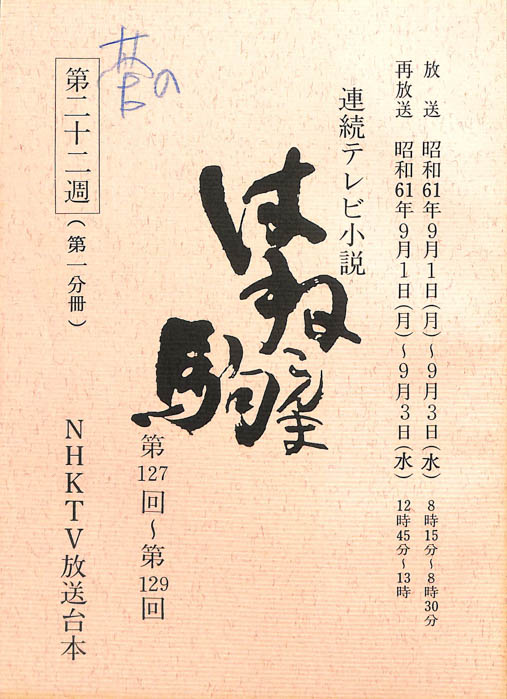 放送 昭和61年9月1日(月)～9月3日(水) 8時15分～8時30分
再放送 昭和61年9月1日(月)～9月3日(水) 12時45分～13時
連続テレビ小説
はね
駒
こんま
第127回～第129回
菅の
第二十二週(第一分冊)
NHKTV放送台本